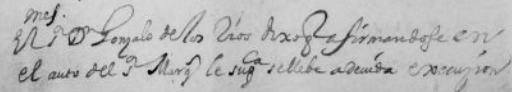 mes.
El sr Dr Gonzalo de los Rios dixo q afirmandose en
el auto del sr Marqs le supca se llebe a devida execucion